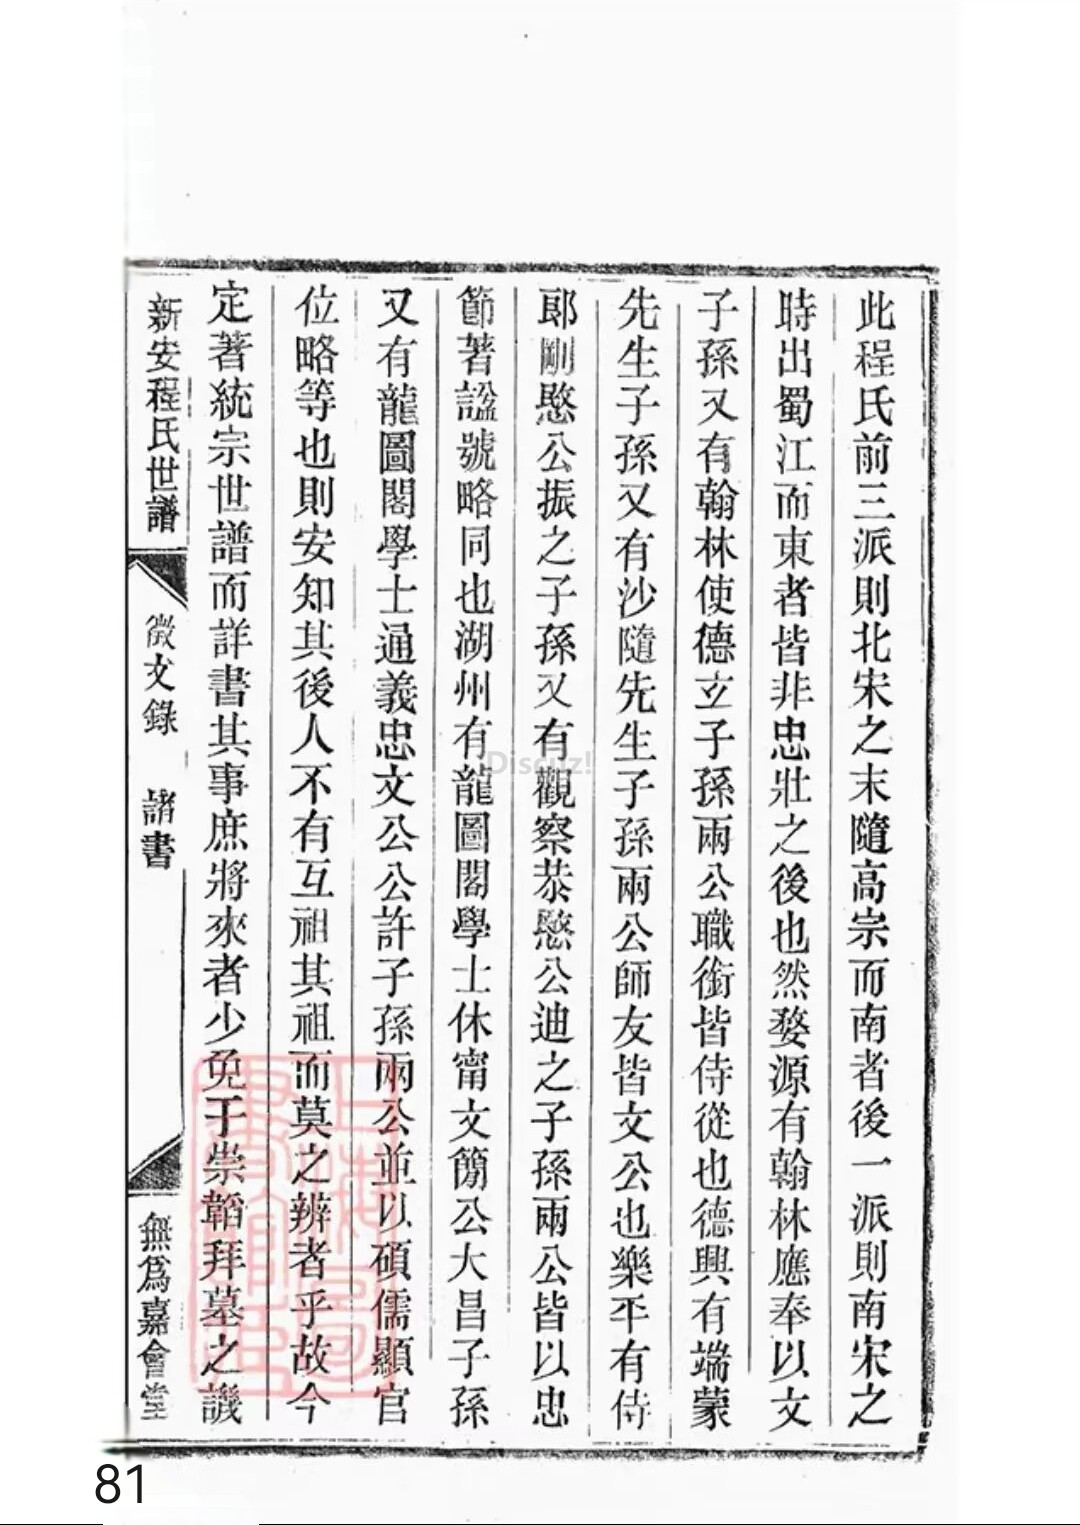 此程氏前三派則北宋之末隨高宗而南者後一派則南宋之
時出蜀江而東者皆非忠壯之後也然婺源有翰林應奉以文
子孫又有翰林使德玄子孫兩公職銜皆侍從也德興有端蒙
先生子孫又有沙隨先生子孫兩公師友皆文公也樂平有侍
郎剛愍公振之子孫又有觀察恭愍公迪之子孫兩公皆以忠
節著諡號略同也湖州有龍圖閣學士休甯文簡公大昌子孫
又有龍圖閣學士通義忠文公公許子孫兩公並以碩儒顯官
位略等也則安知其後人不有互祖其祖而莫之辨者乎故今
定著統宗世譜而詳書其事庶將來者少免于崇韜拜墓之譏
新安程氏世譜
徵文錄 諸書
無爲嘉會堂
Discuz!
81